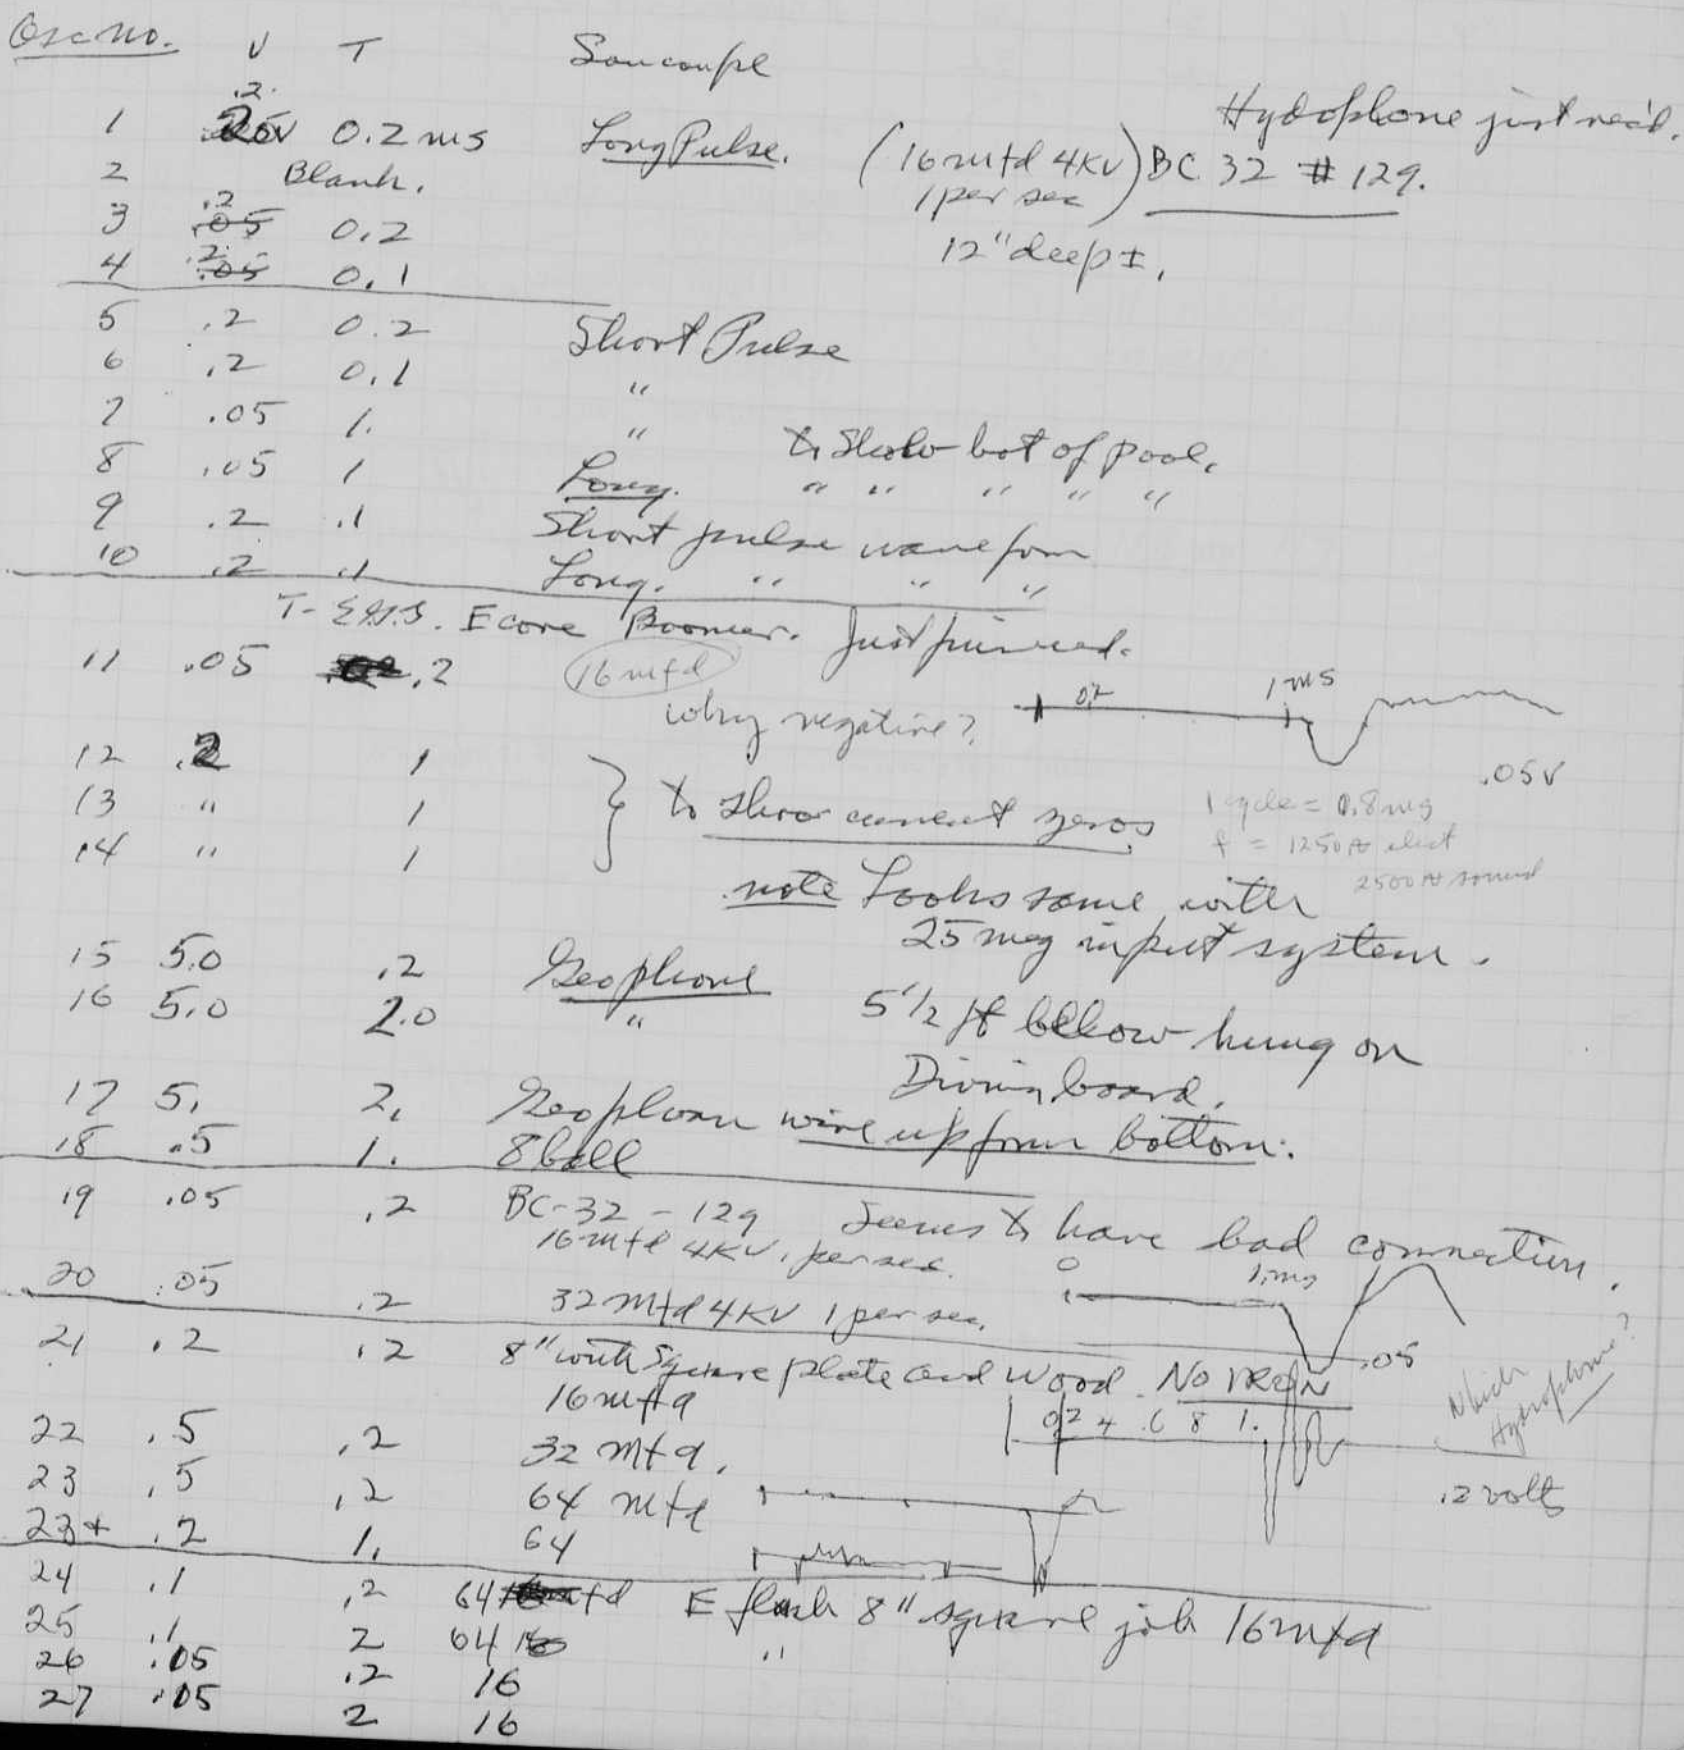 Osc no. V T Soucoupe
.2
1 0.2 ms Long Pulse. (16 mfd 4KV) BC 32 # 129. Hydophone just rec'd.
2 Blank. 1 per sec
.2
3 .05 0.2 12" deep ±.
.2
4 .05 0.1
5 .2 0.2 Short Pulse
6 .2 0.1 "
7 .05 1. " to Show bot of pool.
8 .05 1 Long. " " " " "
9 .2 .1 Short pulse wave form
10 .2 .1 Long. " " "
E core Boomer. Just primed.
11 .05 .2 16 mfd
why negative? 0.2 1 ms
12 .2 1 .05V
13 " 1 } to show current zeros 1 cycle = 0.8 ms
14 " 1 f = 1250 elect
2500 sound
note Looks same with
25 meg input system.
15 5.0 .2 Geophone
16 5.0 2.0 " 5 1/2 ft below hung on
Diving board.
17 5. 2. Geophone wire up from bottom.
18 .5 1. 8 ball
19 .05 .2 BC-32-129 Seems to have bad connection.
16 mfd 4KV 1 per sec. 0 1. ms
20 .05 .2 32 Mfd 4KV 1 per sec.
.05
21 .2 .2 8" with Square plate and Wood. No
16 mfd Which Hydrophone?
0 .2 4 .6 8 1.
22 .5 .2 32 mfd.
23 .5 .2 64 mfd .2 volts
23+ .2 1. 64
24 .1 .2 64 fd E flash 8" square job 16 mfd
25 .1 2 64 "
26 .05 .2 16
27 .05 2 16